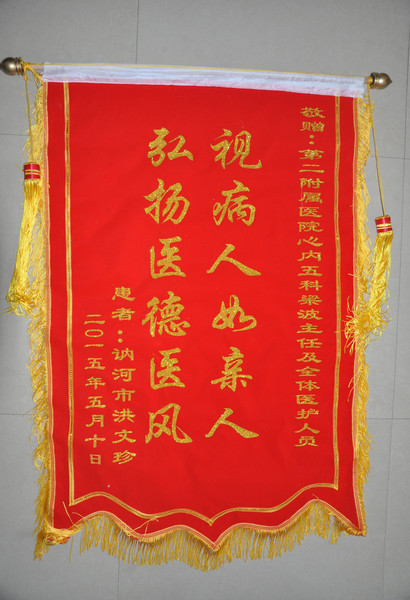 敬赠：第二附属医院心内五科梁波主任及全体医护人员
视病人如亲人
弘扬医德医风
患者：讷河市洪文珍
二〇一五年五月十日